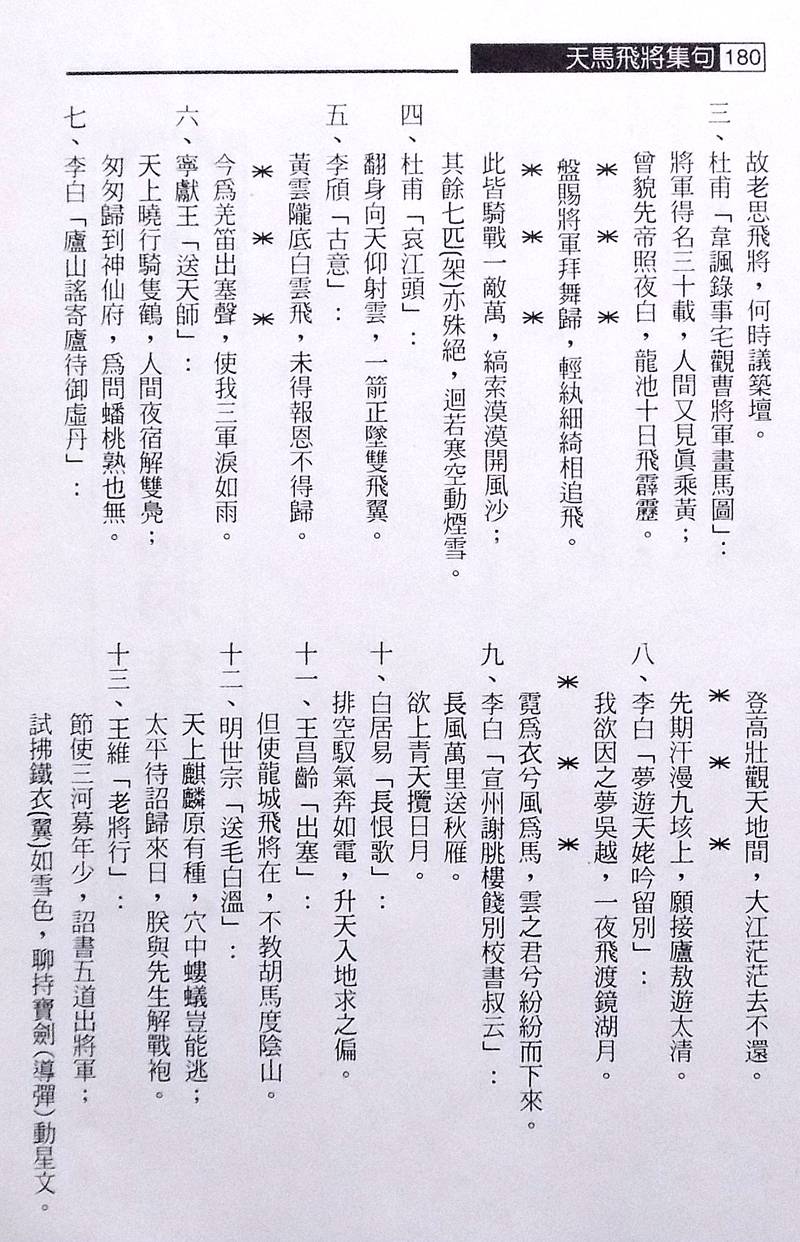 天馬飛將集句 180
故老思飛將，何時議築壇。
三、杜甫「韋諷錄事宅觀曹將軍畫馬圖」：
將軍得名三十載，人間又見眞乘黃；
曾貌先帝照夜白，龍池十日飛霹靂。
＊＊＊
盤賜將軍拜舞歸，輕紈細綺相追飛。
＊＊＊
此皆騎戰一敵萬，縞索漠漠開風沙；
其餘七匹(架)亦殊絕，迴若寒空動煙雪。
四、杜甫「哀江頭」：
翻身向天仰射雲，一箭正墜雙飛翼。
五、李頎「古意」：
黃雲隴底白雲飛，未得報恩不得歸。
＊＊＊
今爲羌笛出塞聲，使我三軍淚如雨。
六、寧獻王「送天師」：
天上曉行騎隻鶴，人間夜宿解雙鳧；
匆匆歸到神仙府，爲問蟠桃熟也無。
七、李白「廬山謠寄廬待御虛丹」：
登高壯觀天地間，大江茫茫去不還。
＊＊＊
先期汗漫九垓上，願接廬敖遊太清。
八、李白「夢遊天姥吟留別」：
我欲因之夢吳越，一夜飛渡鏡湖月。
＊＊＊
霓爲衣兮風爲馬，雲之君兮紛紛而下來。
九、李白「宣州謝朓樓餞別校書叔云」：
長風萬里送秋雁。
欲上青天攬日月。
十、白居易「長恨歌」：
排空馭氣奔如電，升天入地求之偏。
十一、王昌齡「出塞」：
但使龍城飛將在，不教胡馬度陰山。
十二、明世宗「送毛白溫」：
天上麒麟原有種，穴中螻蟻豈能逃；
太平待詔歸來日，朕與先生解戰袍。
十三、王維「老將行」：
節使三河募年少，詔書五道出將軍；
試拂鐵衣(翼)如雪色，聊持寶劍(導彈)動星文。